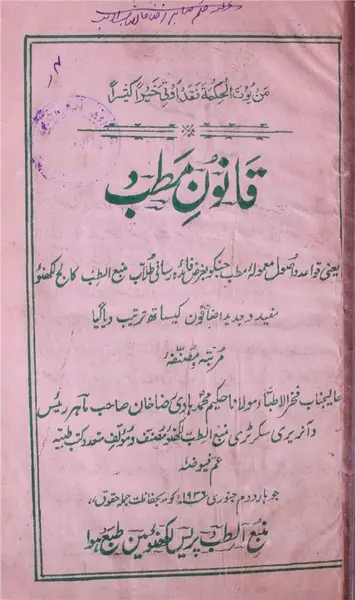 من یؤت الحکمة فقد اوتی خیرا کثیرا
قانونِ مطب
یعنی قواعد و اصول معمولۂ مطب جنکو بغرض فائدہ رسانی طلاب منبع الطب کالج لکھنؤ
مفید و جدید اضافون کیساتھ ترتیب دیا گیا
مرتبہ و مصنفہ
عالیجناب فخر الاطباء مولانا حکیم محمد ہادی رضا خان صاحب ماہر رئیس
و آنریری سکرٹری منبع الطب لکھنؤ مصنف و مؤلف متعدد کتب طبیہ
عم فیوضہ
جو بار دوم جنوری ۱۹۳۶ء کو بحفاظت جملہ حقوق
منبع الطب پریس لکھنؤ مین طبع ہوا